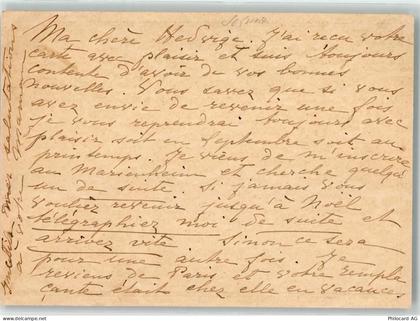 Ma chère Hedwige. J'ai reçu votre
carte avec plaisir et suis toujours
contente d'avoir de vos bonnes
nouvelles. Vous savez que si vous
avez envie de revenir une fois
je vous reprendrai toujours avec
plaisir soit en Septembre soit au
printemps. Je viens de m'inscrire
au Marienheim et cherche quelqu'
un de suite. Si jamais vous
vouliez revenir jusqu'à Noël
télégraphiez moi de suite et
arrivez vite Sinon ce sera
pour une autre fois. Je
reviens de Paris et votre rempla
çante était chez elle en vacance.
mes salutations
à votre maman
picclick.com
Copyright Philokard AG